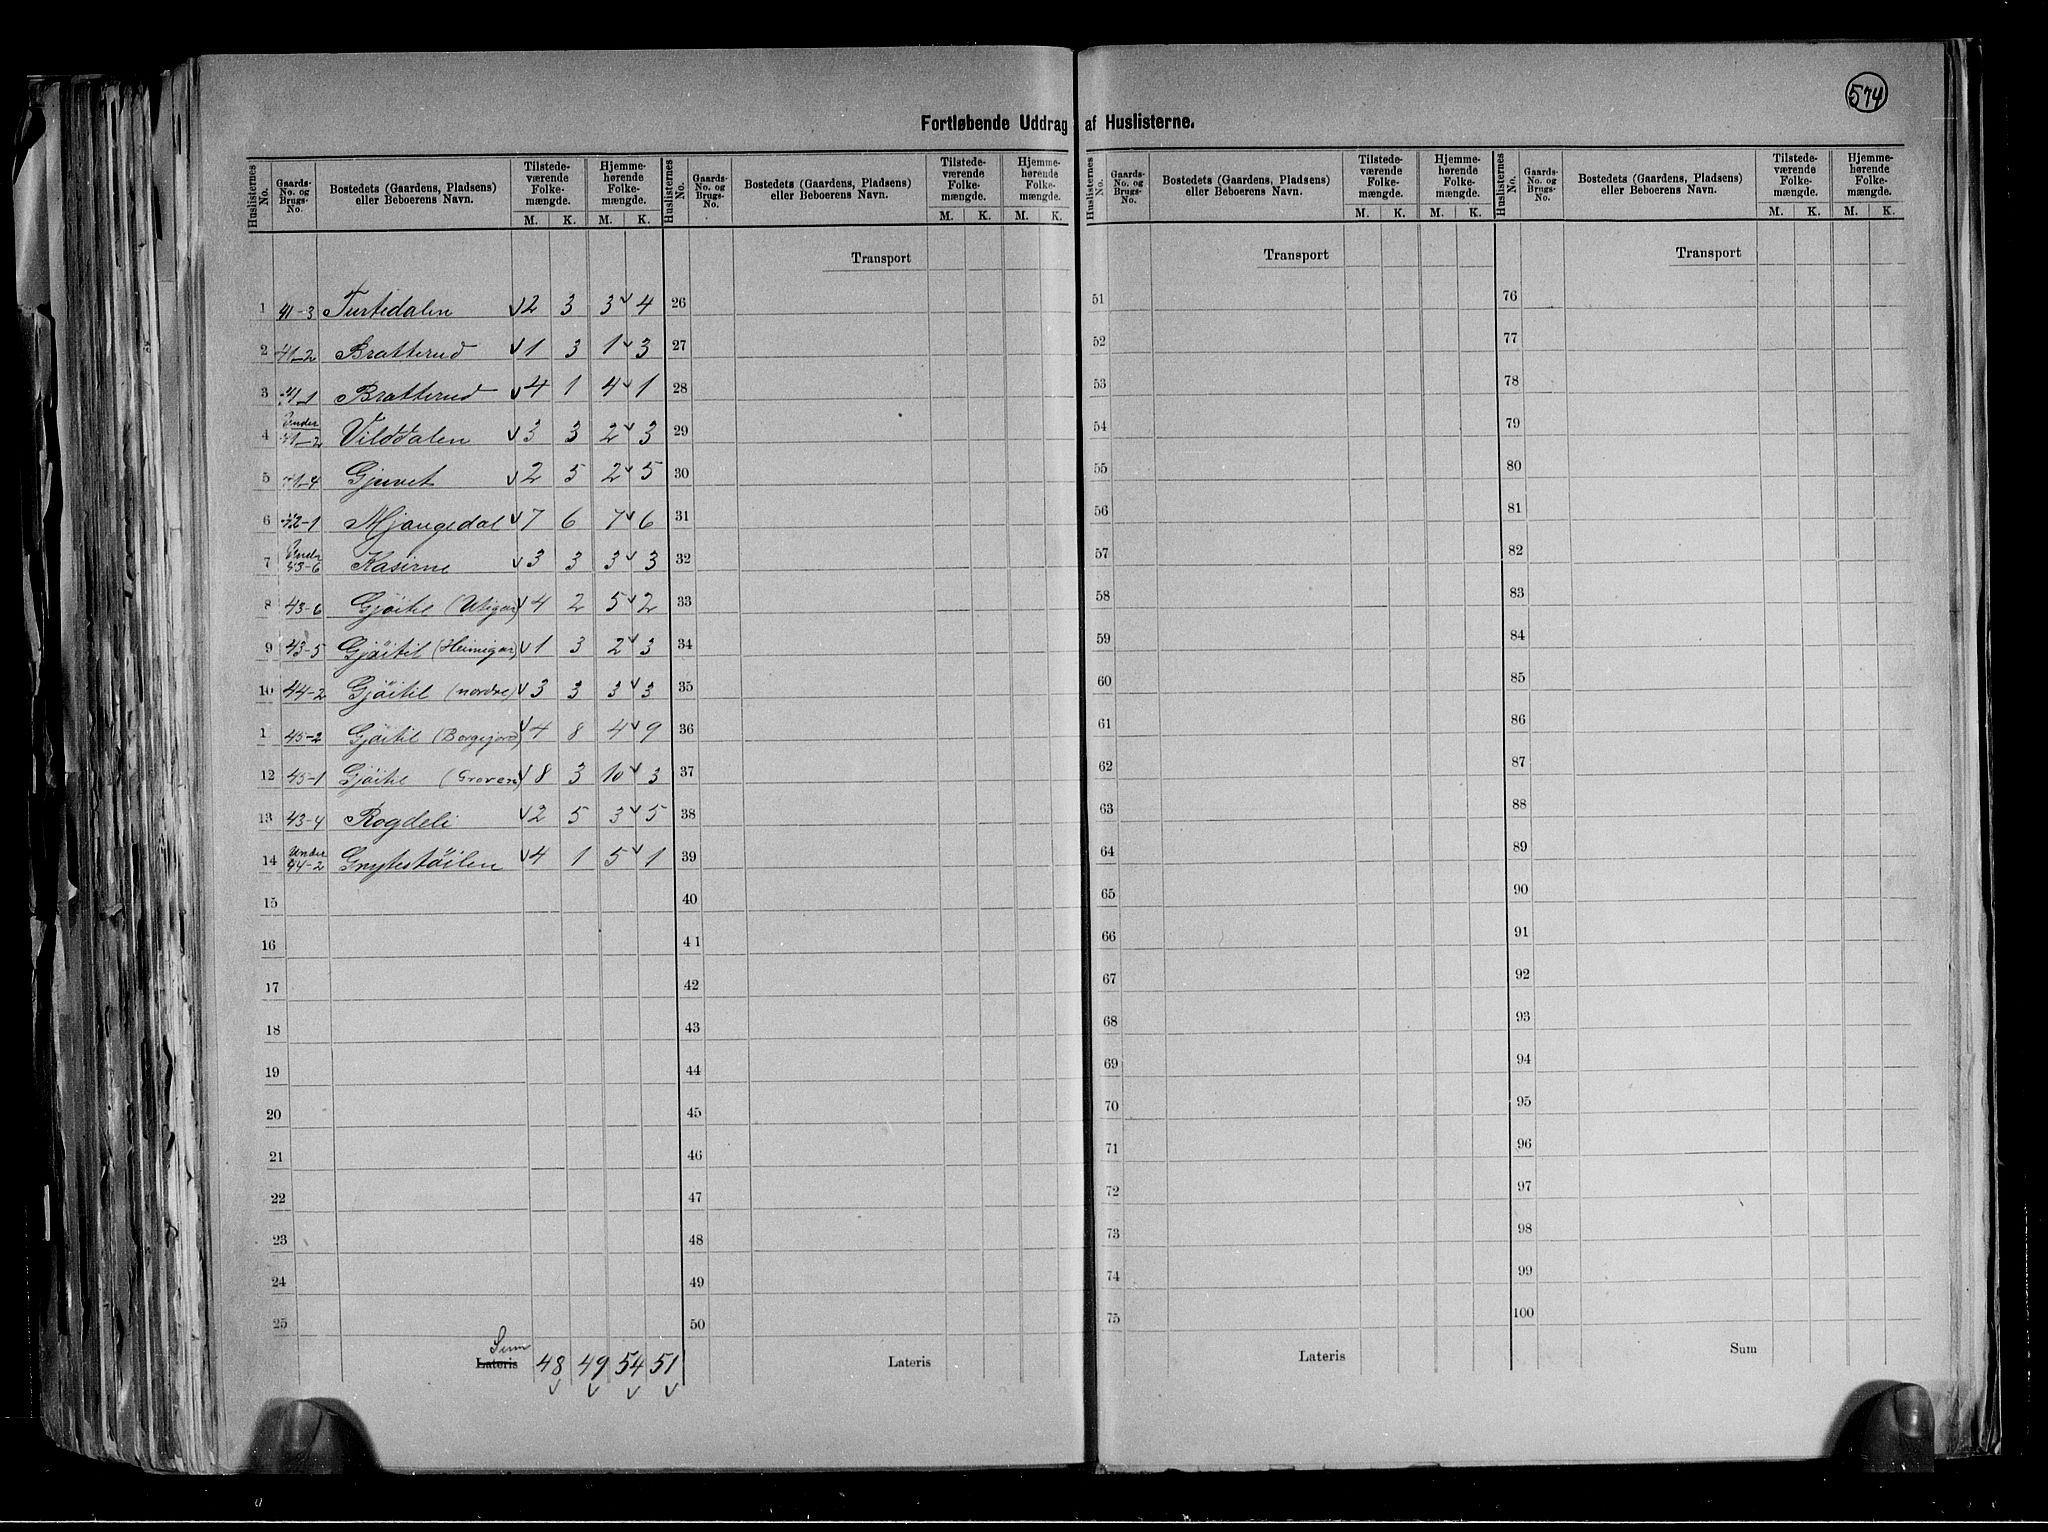 574
Fortløbende Uddrag af Huslisterne.
Huslisternes No. Gaards-No. og Brugs-No. Bostedets (Gaardens, Pladsens) eller Beboerens Navn. Tilstedeværende Folkemængde. M. K. Hjemmehørende Folkemængde. M. K.
Huslisternes No. Gaards-No. og Brugs-No. Bostedets (Gaardens, Pladsens) eller Beboerens Navn. Tilstedeværende Folkemængde. M. K. Hjemmehørende Folkemængde. M. K.
Huslisternes No. Gaards-No. og Brugs-No. Bostedets (Gaardens, Pladsens) eller Beboerens Navn. Tilstedeværende Folkemængde. M. K. Hjemmehørende Folkemængde. M. K.
Huslisternes No. Gaards-No. og Brugs-No. Bostedets (Gaardens, Pladsens) eller Beboerens Navn. Tilstedeværende Folkemængde. M. K. Hjemmehørende Folkemængde. M. K.
Transport Transport Transport
1 41-3 Turtedalen 2 3 3 4 26 51 76
2 41-2 Bratterud 1 3 1 3 27 52 77
3 41-1 Bratterud 4 1 4 1 28 53 78
4 Under 41-2 Vilddalen 3 3 2 3 29 54 79
5 41-4 Gjuvet 2 5 2 5 30 55 80
6 42-1 Mjaugedal 7 6 7 6 31 56 81
7 Under 43-6 Kasirne 3 3 3 3 32 57 82
8 43-6 Gjöitil (Utigar) 4 2 5 2 33 58 83
9 43-5 Gjöitil (Heimigar) 1 3 2 3 34 59 84
10 44-2 Gjöitil (nordre) 3 3 3 3 35 60 85
1 45-2 Gjöitil (Borgejord) 4 8 4 9 36 61 86
12 45-1 Gjöitil (Groven) 8 3 10 3 37 62 87
13 43-4 Rogdeli 2 5 3 5 38 63 88
14 Under 44-2 Gnytestöilen 4 1 5 1 39 64 89
15 40 65 90
16 41 66 91
17 42 67 92
18 43 68 93
19 44 69 94
20 45 70 95
21 46 71 96
22 47 72 97
23 48 73 98
24 49 74 99
25 50 75 100
Sum
Lateris 48 49 54 51 Lateris Lateris Sum